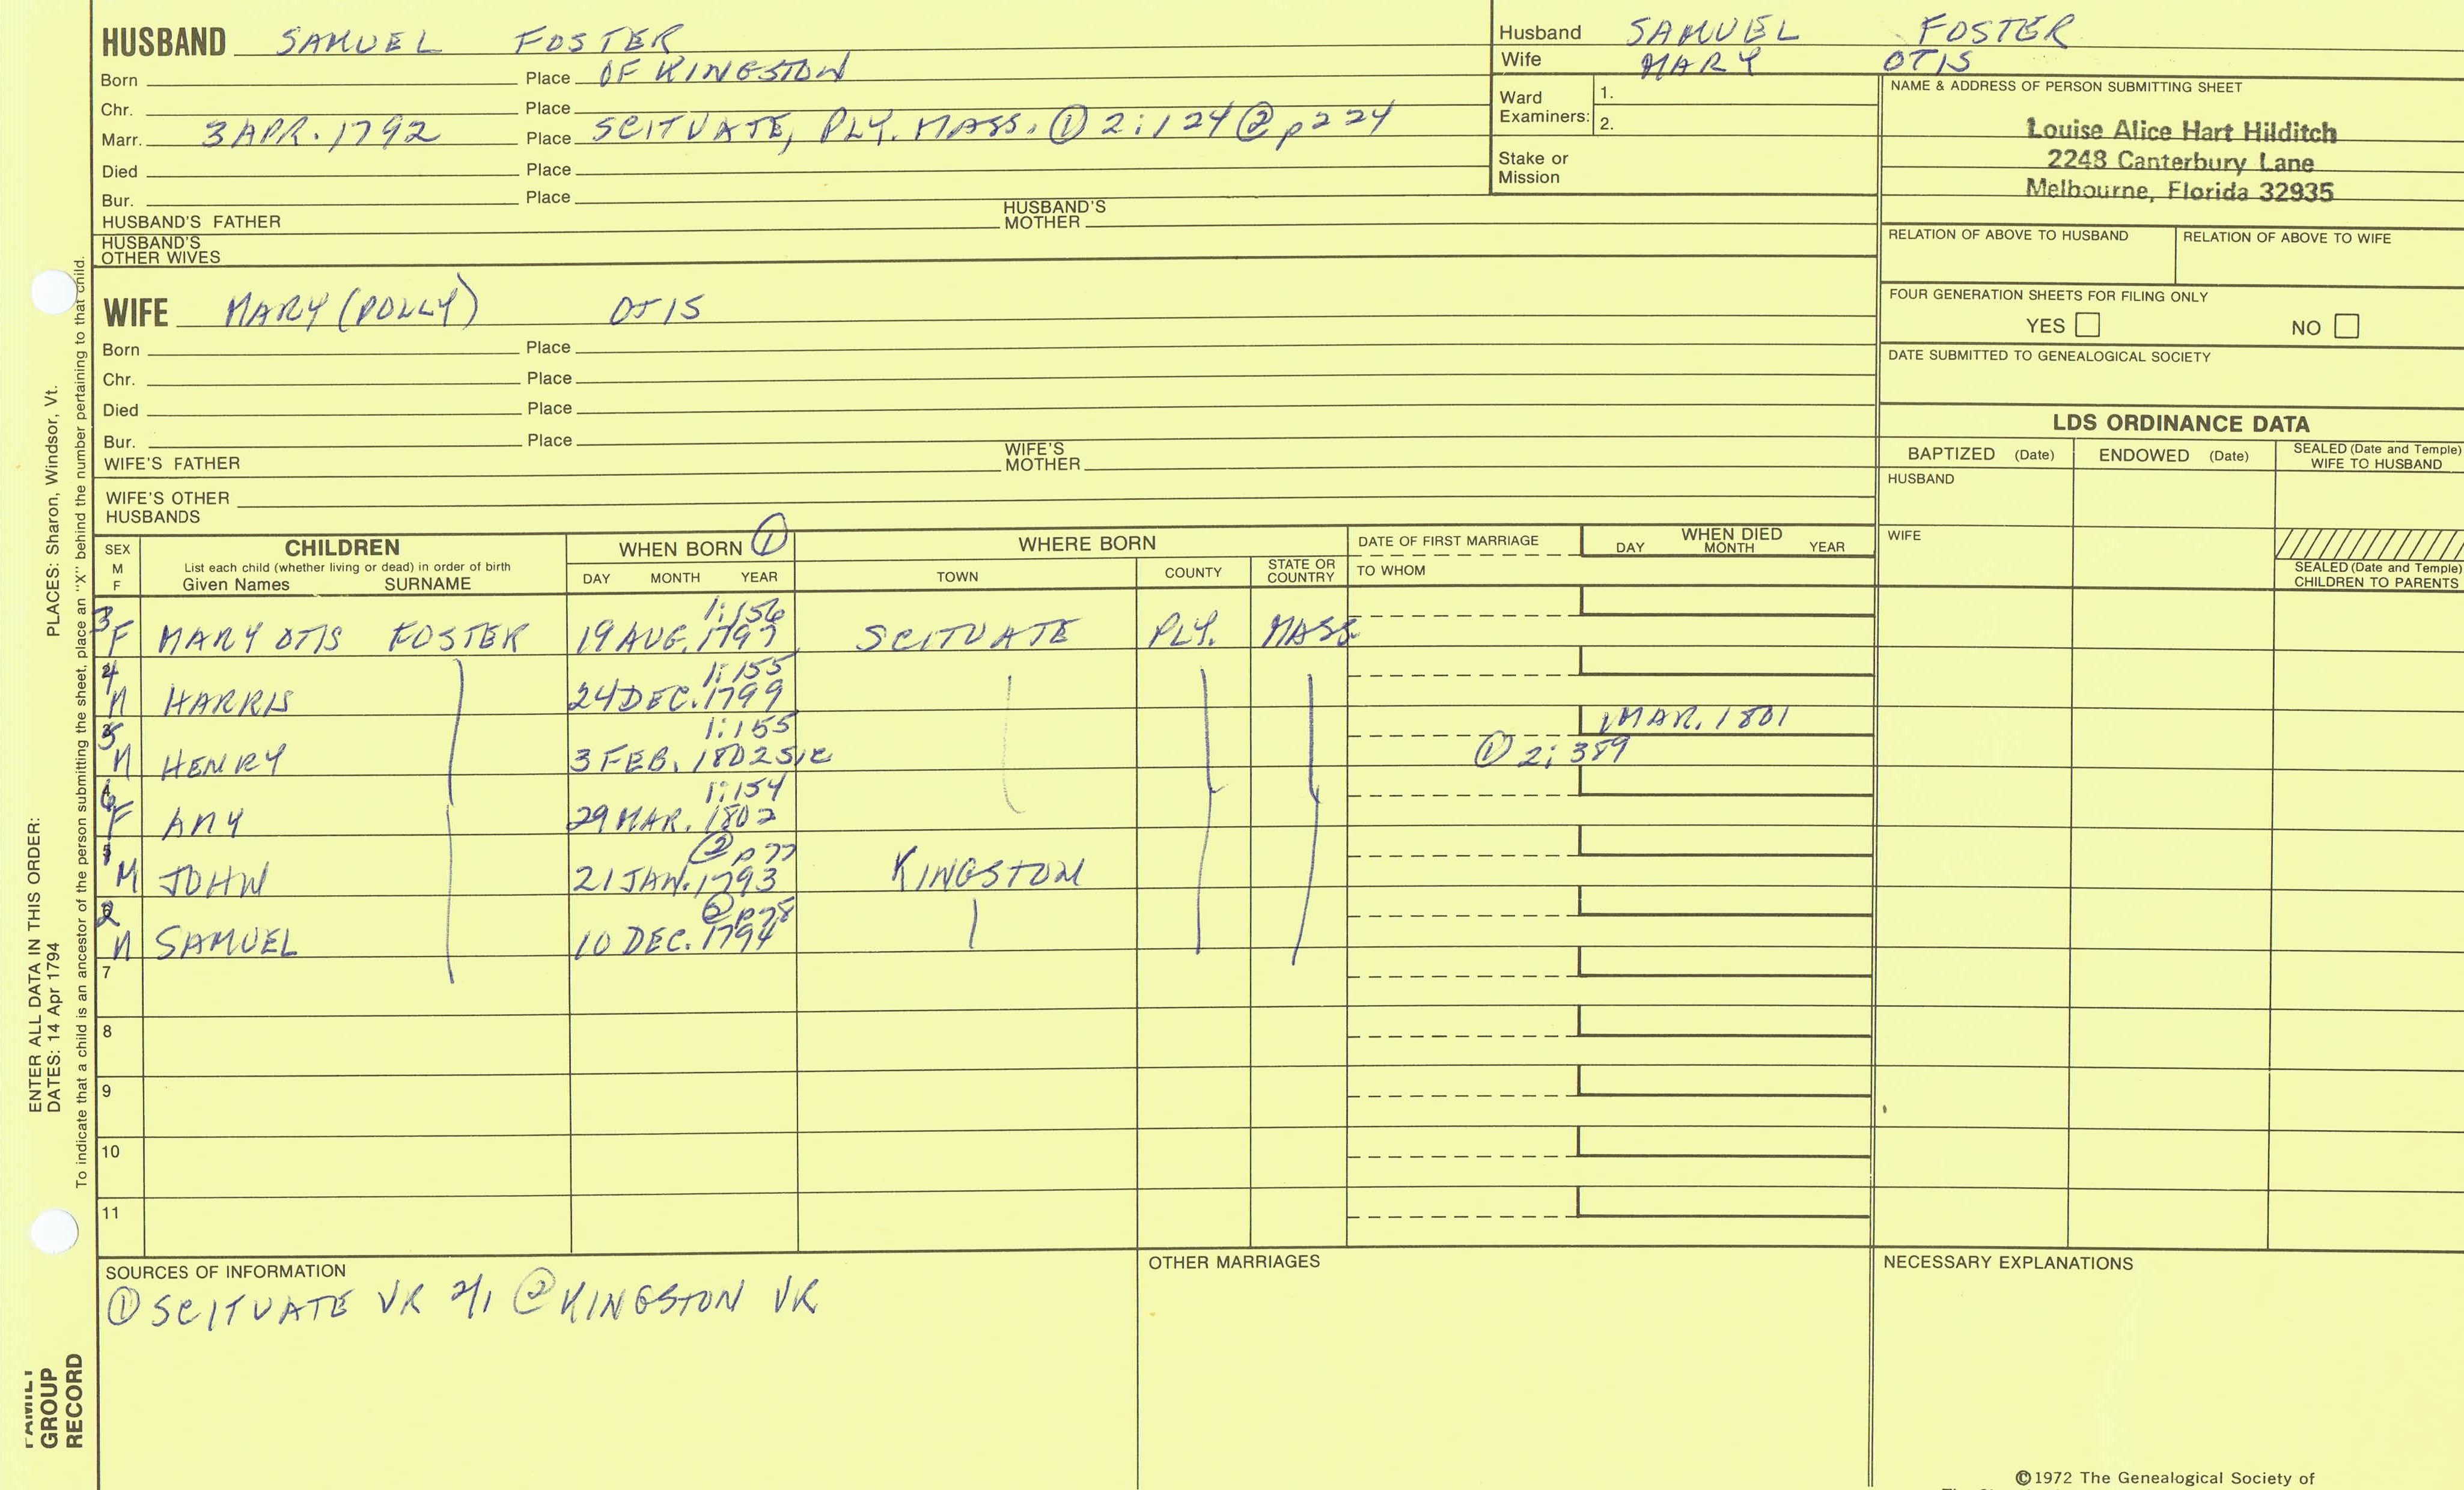 HUSBAND SAMUEL FOSTER
Born Place OF KINGSTON
Chr. Place
Marr. 3 APR. 1792 Place SCITUATE, PLY. MASS. ① 2:124 ② p224
Died Place
Bur. Place
HUSBAND'S FATHER HUSBAND'S MOTHER
HUSBAND'S OTHER WIVES
Husband SAMUEL FOSTER
Wife MARY OTIS
Ward Examiners: 1.
2.
Stake or Mission
NAME & ADDRESS OF PERSON SUBMITTING SHEET
Louise Alice Hart Hilditch
2248 Canterbury Lane
Melbourne, Florida 32935
RELATION OF ABOVE TO HUSBAND RELATION OF ABOVE TO WIFE
FOUR GENERATION SHEETS FOR FILING ONLY
YES NO
DATE SUBMITTED TO GENEALOGICAL SOCIETY
WIFE MARY (POLLY) OTIS
Born Place
Chr. Place
Died Place
Bur. Place
WIFE'S FATHER WIFE'S MOTHER
WIFE'S OTHER HUSBANDS
LDS ORDINANCE DATA
BAPTIZED (Date) ENDOWED (Date) SEALED (Date and Temple) WIFE TO HUSBAND
HUSBAND
WIFE
SEALED (Date and Temple) CHILDREN TO PARENTS
SEX M F
CHILDREN
List each child (whether living or dead) in order of birth
Given Names SURNAME
WHEN BORN ①
DAY MONTH YEAR
WHERE BORN
TOWN COUNTY STATE OR COUNTRY
DATE OF FIRST MARRIAGE
TO WHOM
WHEN DIED
DAY MONTH YEAR
1:156
3 F MARY OTIS FOSTER 19 AUG. 1797 SCITUATE PLY. MASS.
1:155
4 M HARRIS 24 DEC. 1799
1:155 1 MAR. 1801
5 M HENRY 3 FEB. 1802 SIC ① 2:389
1:154
6 F AMY 29 MAR. 1802
② p77
1 M JOHN 21 JAN. 1793 KINGSTON
② p78
2 M SAMUEL 10 DEC. 1794
7
8
9
10
11
SOURCES OF INFORMATION
① SCITUATE VR 2/1 ② KINGSTON VR
OTHER MARRIAGES
NECESSARY EXPLANATIONS
©1972 The Genealogical Society of
ENTER ALL DATA IN THIS ORDER:
DATES: 14 Apr 1794 PLACES: Sharon, Windsor, Vt.
To indicate that a child is an ancestor of the person submitting the sheet, place an "X" behind the number pertaining to that child.
FAMILY GROUP RECORD